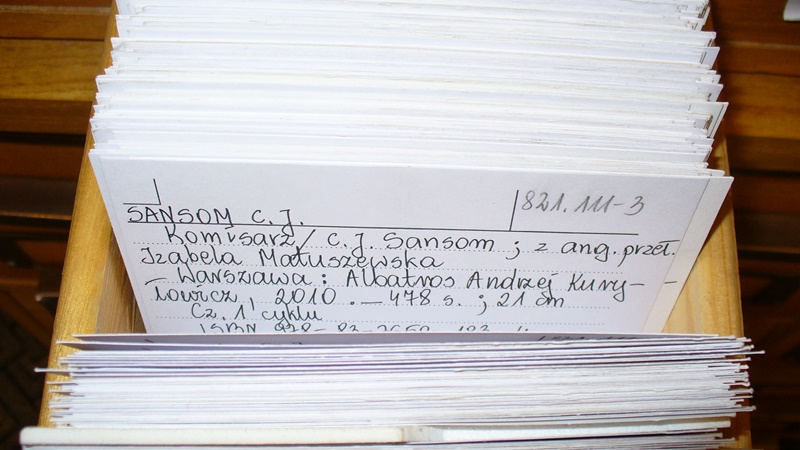 821.111-3
SANSOM C. J.
Komisarz / C. J. Sansom ; z ang. przeł.
Izabela Matuszewska
– Warszawa : Albatros Andrzej Kury-
łowicz, 2010. – 478 s. ; 21 cm
Cz. 1 cyklu
ISBN 978-83-7659-